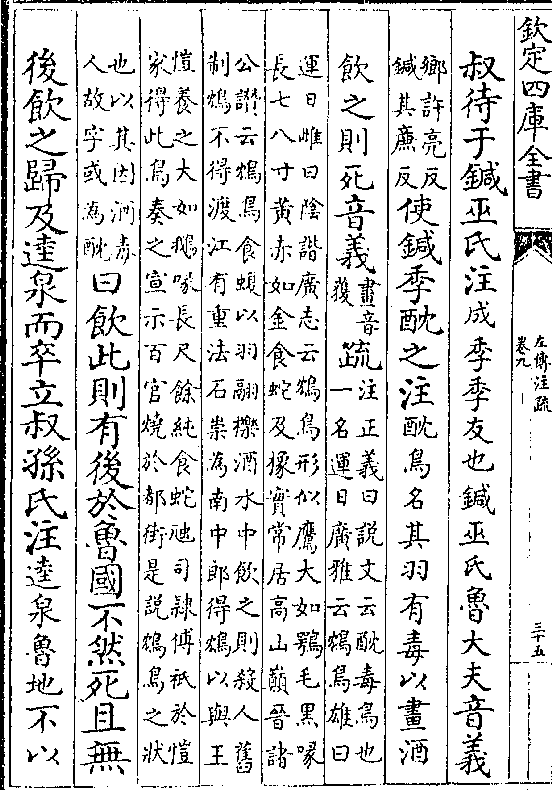 欽定四庫全書
左傳注疏
卷九
三十五
叔待于鍼巫氏注成季季友也鍼巫氏魯大夫音義
鄉許亮反
鍼其廉反
使鍼季酖之注酖鳥名其羽有毒以畫酒
飲之則死音義
畫音
獲
疏
注正義曰說文云酖毒鳥也
一名運日廣雅云鴆鳥雄曰
運日雌曰陰諧廣志云鴆鳥形似鷹大如鶚毛黑喙
長七八寸黃赤如金食蛇及橡實常居高山巔晉諸
公讚云鴆鳥食蝮以羽翮擽酒水中飲之則殺人舊
制鴆不得渡江有重法石崇為南中郎得鴆以與王
愷養之大如鵝喙長尺餘純食蛇虺司隸傅祗於愷
家得此鳥奏之宣示百官燒於都街是說鴆鳥之狀
也以其因酒毒
人故字或為酖
曰飲此則有後於魯國不然死且無
後飲之歸及逵泉而卒立叔孫氏注逵泉魯地不以